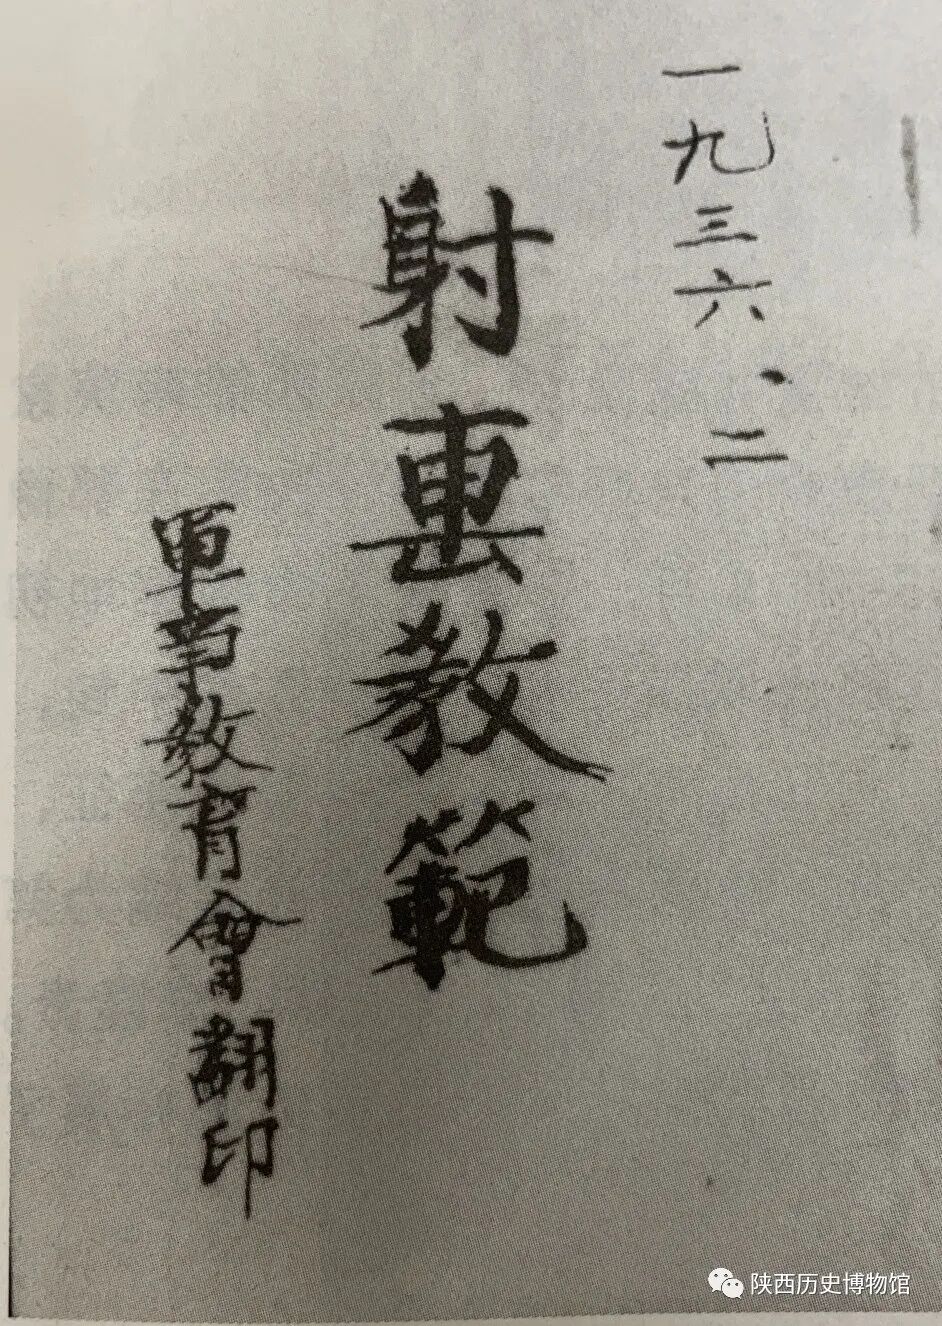 一九三六、二
射擊教範
軍事教育會翻印
陕西历史博物馆